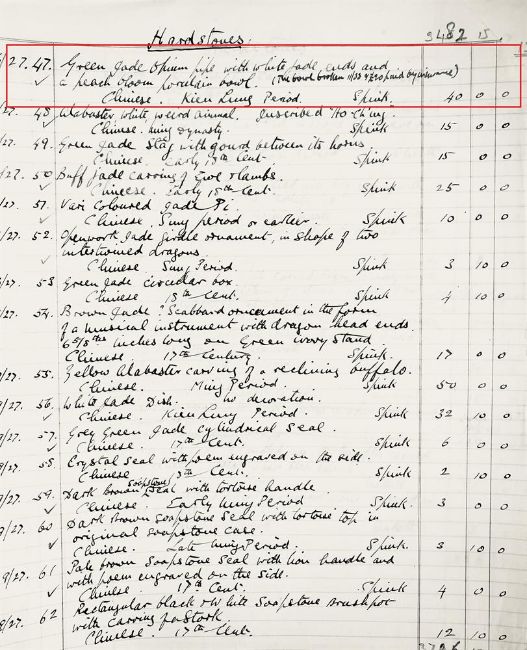 Hardstones. 3482 15
/27. 47. Green Jade Opium Pipe with White Jade ends and
a peach bloom porcelain bowl. (The bowl broken
Chinese. Kien Lung Period. Spink. 40 0 0
48 Alabaster, White, weird animal, inscribed
Chinese. Ming dynasty. Spink 15 0 0
/27. 49. Green Jade Stag with gourd between its horns
Chinese. Early 17th Cent. Spink 15 0 0
/27. 50 Buff Jade carving of Ewe & lambs.
Chinese. Early 18th Cent. Spink 25 0 0
/27. 51. Vari Coloured Jade Pi
Chinese, Sung period or earlier. Spink 10 0 0
/27. 52. Openwork Jade girdle ornament, in shape of two
intertwined dragons.
Chinese Sung Period. Spink 3 10 0
/27. 53 Green Jade circular box.
Chinese 18th Cent. Spink 4 10 0
/27. 54. Brown Jade ? Scabbard ornament in the form
of a musical instrument with dragon head ends.
6 5/8ths inches long on Green ivory stand
Chinese 17th Century. Spink. 17 0 0
/27. 55. Yellow Alabaster carving of a reclining buffalo.
Chinese. Ming Period. Spink 50 0 0
/27. 56. White Jade Dish. no decoration.
Chinese. Kien Lung Period. Spink 32 10 0
/27. 57. Grey Green Jade cylindrical Seal.
Chinese. 17th Cent. Spink 6 0 0
/27. 58. Crystal seal with poem engraved on the side.
Chinese Cent. Spink 2 10 0
/27. 59. Dark brown Soapstone Seal with tortoise handle.
Chinese. Early Ming Period Spink. 3 0 0
9/27. 60 Dark Brown soapstone Seal with tortoise top in
original soapstone case.
Chinese. Late Ming Period. Spink. 3 10 0
9/27. 61 Pale brown Soapstone Seal with lion handle and
with poem engraved on the side.
Chinese. 17th Cent. Spink 4 0 0
9/27. 62 Rectangular black & White Soapstone brushpot
with carving of a Stork.
Chinese. 17th Cent. 12 10 0